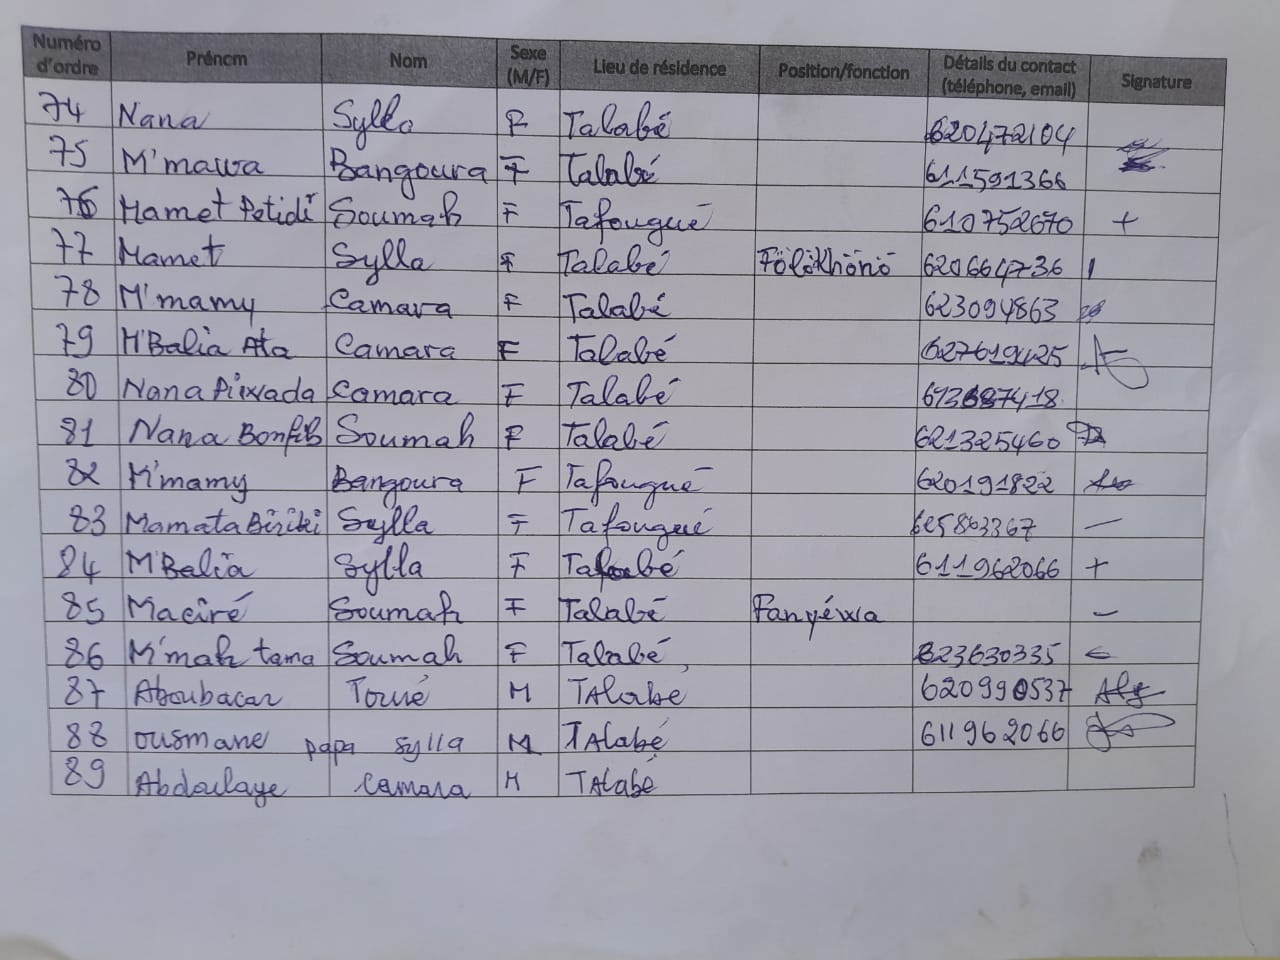 Numéro d'ordre Prénom Nom Sexe (M/F) Lieu de résidence Position/fonction Détails du contact (téléphone, email) Signature
74 Nana Sylla F Talabé 620472104
75 M'mawa Bangoura F Talabé 611591366
76 Mamet Petidi Soumah F Tafougué 610752670 +
77 Mamet Sylla F Talabé Fölökhönö 620664736
78 M'mamy Camara F Talabé 623094863
79 M'Balia Ata Camara F Talabé 627619425
80 Nana Camara F Talabé
81 Nana Bonfib Soumah F Talabé 621325460
82 M'mamy Bangoura F Tafougué 620191822
83 Mamata Biriki Sylla F Tafougué 625863367 —
84 M'Balia Sylla F Talabé 611962066 +
85 Maciré Soumah F Talabé Fanyéxxa —
86 M'mah tama Soumah F Talabé 623630335
87 Aboubacar Touré M TAlabé 620990537
88 ousmane papa sylla M TAlabé 611962066
89 Abdoulaye Camara M TAlabé